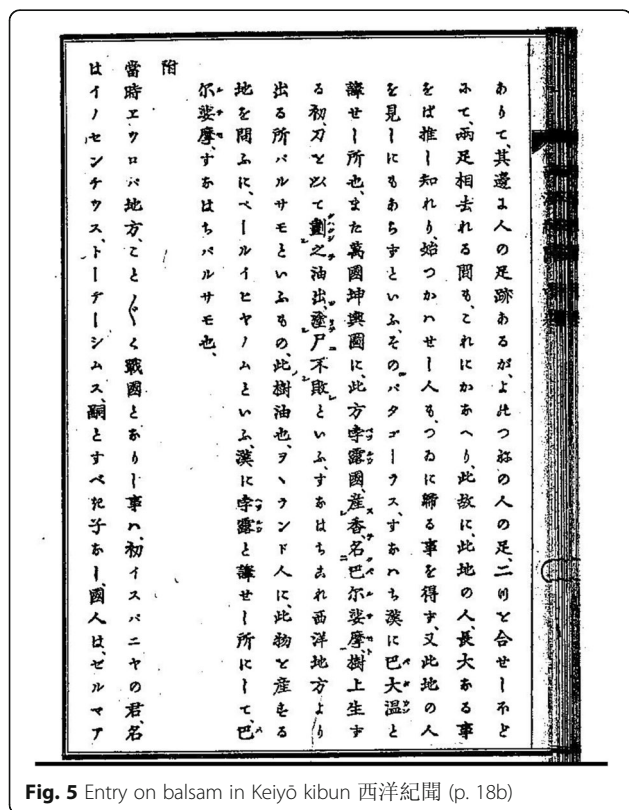 ありて、其邊に人の足跡あるが、よのつねの人の足、二つを合せしほど
にて、兩足相去れる間も、これにかなへり、此故に、此地の人、長大なる事
をば推し知れり、始つかハせし人も、つゐに歸る事を得ず、又此地の人
を見しにもあらずといふ、そのパタゴーラス、すなハち漢に巴大温と
譯せし所也、また萬國坤輿圖に、此方孛露國、産香、名巴尔娑摩、樹上生ず
る初、刀を以て劃之油出、塗尸不敗といふ、すなはちこれ西洋地方より
出る所バルサモといふもの、此樹油也、ヲヽランド人に、此物を産する
地を問ふに、ペールイヒヤノムといふ、漢に孛露と譯せし所にして、巴
尔娑摩、すなはちバルサモ也、
附
當時エウロパ地方、こと〲く戰國となりし事ハ、初イスパニヤの君、名
はイノセンチウス、トーデーシムス、嗣とすべき子なし、國人は、ゼルマア
Fig. 5 Entry on balsam in Keiyō kibun 西洋紀聞 (p. 18b)